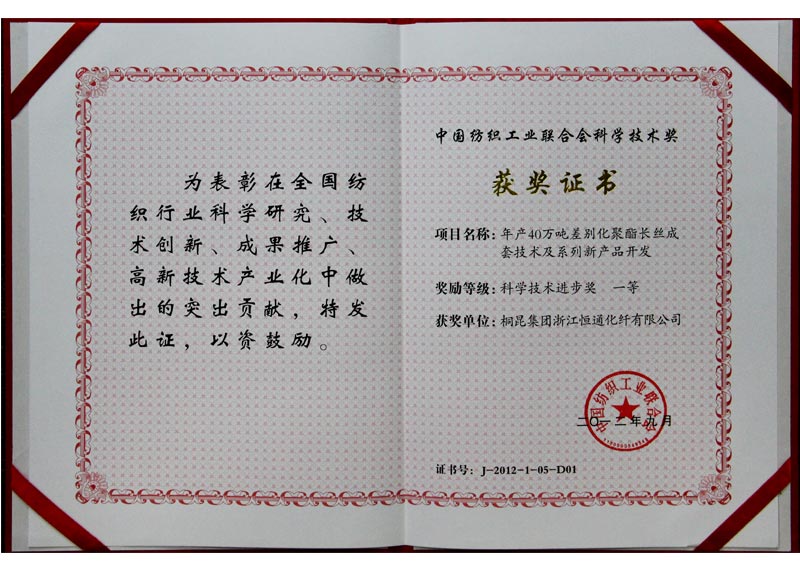 为表彰在全国纺
织行业科学研究、技
术创新、成果推广、
高新技术产业化中做
出的突出贡献，特发
此证，以资鼓励。
中国纺织工业联合会科学技术奖
获奖证书
项目名称：年产40万吨差别化聚酯长丝成
套技术及系列新产品开发
奖励等级：科学技术进步奖 一等
获奖单位：桐昆集团浙江恒通化纤有限公司
中国纺织工业联合会
二〇一二年九月
证书号：J-2012-1-05-D01